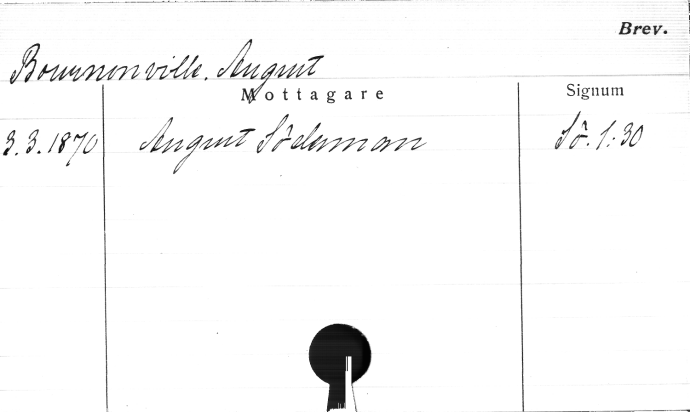 Brev.
Bournonville, August
Mottagare Signum
3.3.1870 August Söderman Sö. 1:30